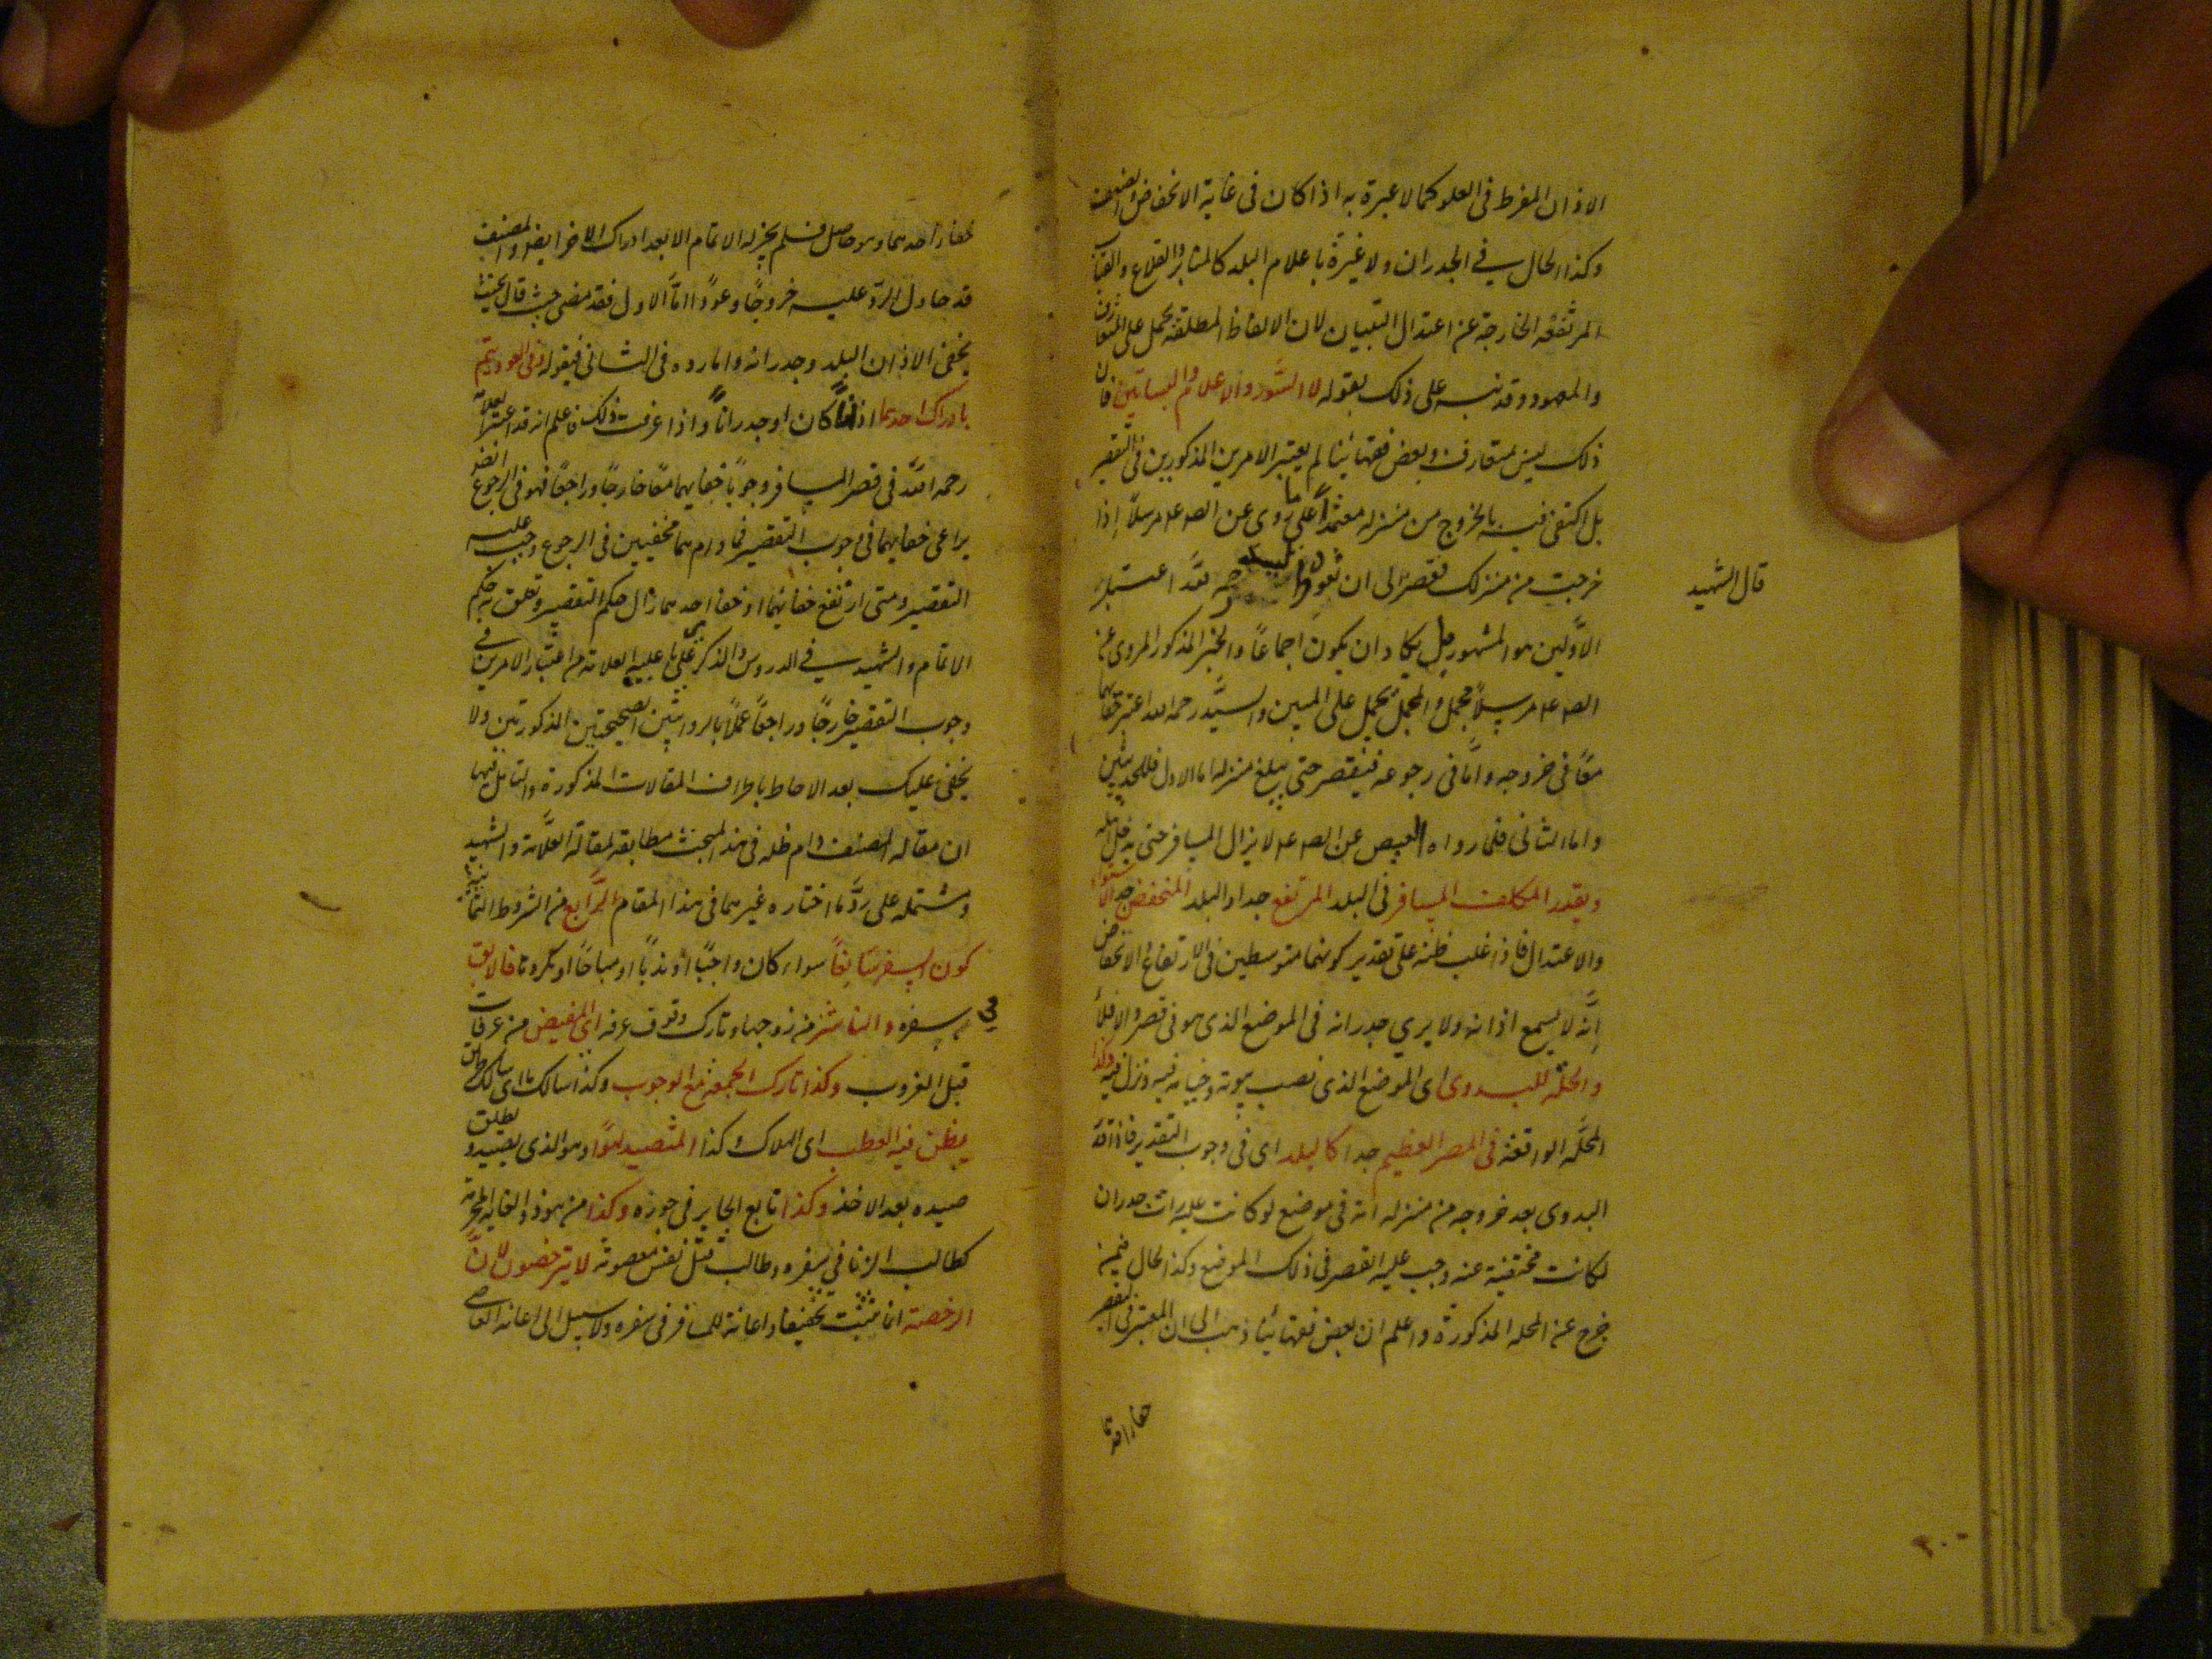 الاذان المفرط فى العلو كما لا عبرة به اذا كان فى غاية الانخفاض
وكذا الحال فى الجدران ولا عبرة باعلام البلد كالمنابر والقلاع والقباب
المرتفعة الخارجة عن اعتدال البنيان لان الالفاظ المطلقة تحمل على المتعارف
والمعهود وقد نبه على ذلك بقوله لا السور والاعلام والبساتين فان
ذلك ليس متعارف وبعض فقهائنا لم يعتبر الامرين المذكورين فى التقصير
بل اكتفى فيه بالخروج من منزله معتمداً على ما روى عن الصه عه مرسلاً اذا
خرجت من منزلك فقصر الى ان تعود اعتبار
قال الشهيد
الاولين هو المشهور بل يكاد ان يكون اجماعاً والخبر المذكور المروى عن
الصه عه مرسلاً مجمل والمجمل يحمل على المبين والسيد رحمه الله اعتبر خفائهما
معاً فى خروجه واما فى رجوعه فيقصر حتى يبلغ منزله اما الاول فللحديثين
واما الثانى فلما رواه العيص عن الصه عه لا يزال المسافر حتى يدخل
ويقدر المكلف المسافر فى البلد المرتفع جدا والبلد المنخفض جدا الاستواء
والاعتدال فاذا غلب ظنه على تقدير كونهما متوسطين فى الارتفاع والانخفاض
انه لا يسمع اذانه ولا يرى جدرانه فى الموضع الذى هو فى قصر والا فلا
والحلة للبدوى اى الموضع الذى نصب بيوته وخيامه فيه ونزل فيه وكذا
المحلة الواقعة فى المصر العظيم جدا كالبلد اى فى وجوب التقدير فاذا قدر
البدوى بعد خروجه من منزله انه فى موضع لو كانت جدران
لكانت مختفية عنه وجب عليه القصر فى ذلك الموضع وكذا الحال فيمن
خرج عن المحله المذكورة واعلم ان بعض فقهائنا ذهب الى ان المعتبر فى القصر
خفاء احدهما
خفاء احدهما وهو حاصل فلم يجز له الاتمام الا بعد ادراك الاخر ايضا والمصنف
قد حاول الرد عليه خروجًا وعودًا اما الاول فقد مضى حيث قال بحيث
يخفى الاذان البلد وجدرانه واما رده فى الثانى فبقوله وفى العود يتم
بادراك احدهما اذاناً كان او جدراناً واذا عرفت ذلك فاعلم انه قد اعتبر العلامة
رحمه الله فى قصر المسافر وجوباً خفائهما معًا خارجًا وراجعًا فهو فى الرجوع ايضا
يراعى خفائهما فى وجوب التقصير فما دام هما مخفيين فى الرجوع وجب عليه
التقصير ومتى ارتفع خفائهما او خفا احدهما زال حكم التقصير وتعلق به حكم
الاتمام والشهيد فى الدروس والذكرى على ما عليه العلامة من اعتبار الامرين فى
وجوب التقصير خارجًا وراجعًا عملاً بالروايتين الصحيحتين المذكورتين ولا
يخفى عليك بعد الاحاط باطراف المقالات المذكورة والتامل فيها
ان مقاله المصنف دام ظله فى هذا المبحث مطابقه لمقالة العلامة والشهيد
ومشتمله على رد ما اختاره غيرهما فى هذا المقام الرابع من الشروط الثمانية
كون السفر سائغاً سواء كان واجبًا او ندبًا او مباحًا او مكروها فالابق
فى سفره والناشز من زوجها وتارك وقوف عرفه اى المفيض من عرفات
قبل الغروب وكذا تارك الجمعة مع الوجوب وكذا سالك ما اى سالك طريق
يظن فيه العطب اى الهلاك وكذا المتصيد لهوًا وهو الذى يصيد و يطلق
صيده بعد الاخذ وكذا تابع الجاير فى جوره وكذا من هو ذو الغاية المحرمة
كطالب الزنا فى سفره وطالب قتل نفس معصومة لا يترخصون لان
الرخصة انما تثبت تخفيفا واعانة للمسافر فى سفره ولا سبيل الى اعانه العاصى